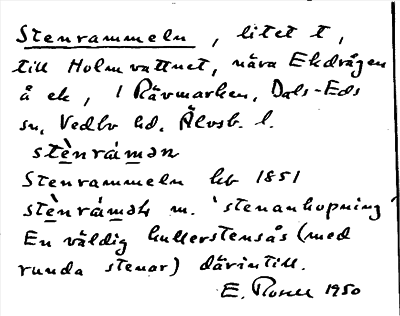 Stenrammeln, litet t,
till Holmvattnet, nära Ekdrågen
å ek, i Rävmarken, Dals-Eds
sn, Vedbo hd, Älvsb. l.
stènrámən
Stenrammeln hb 1851
stènráməł m. 'stenanhopning'
En väldig kullerstensås (med
runda stenar) därintill.
E. Rosell 1950